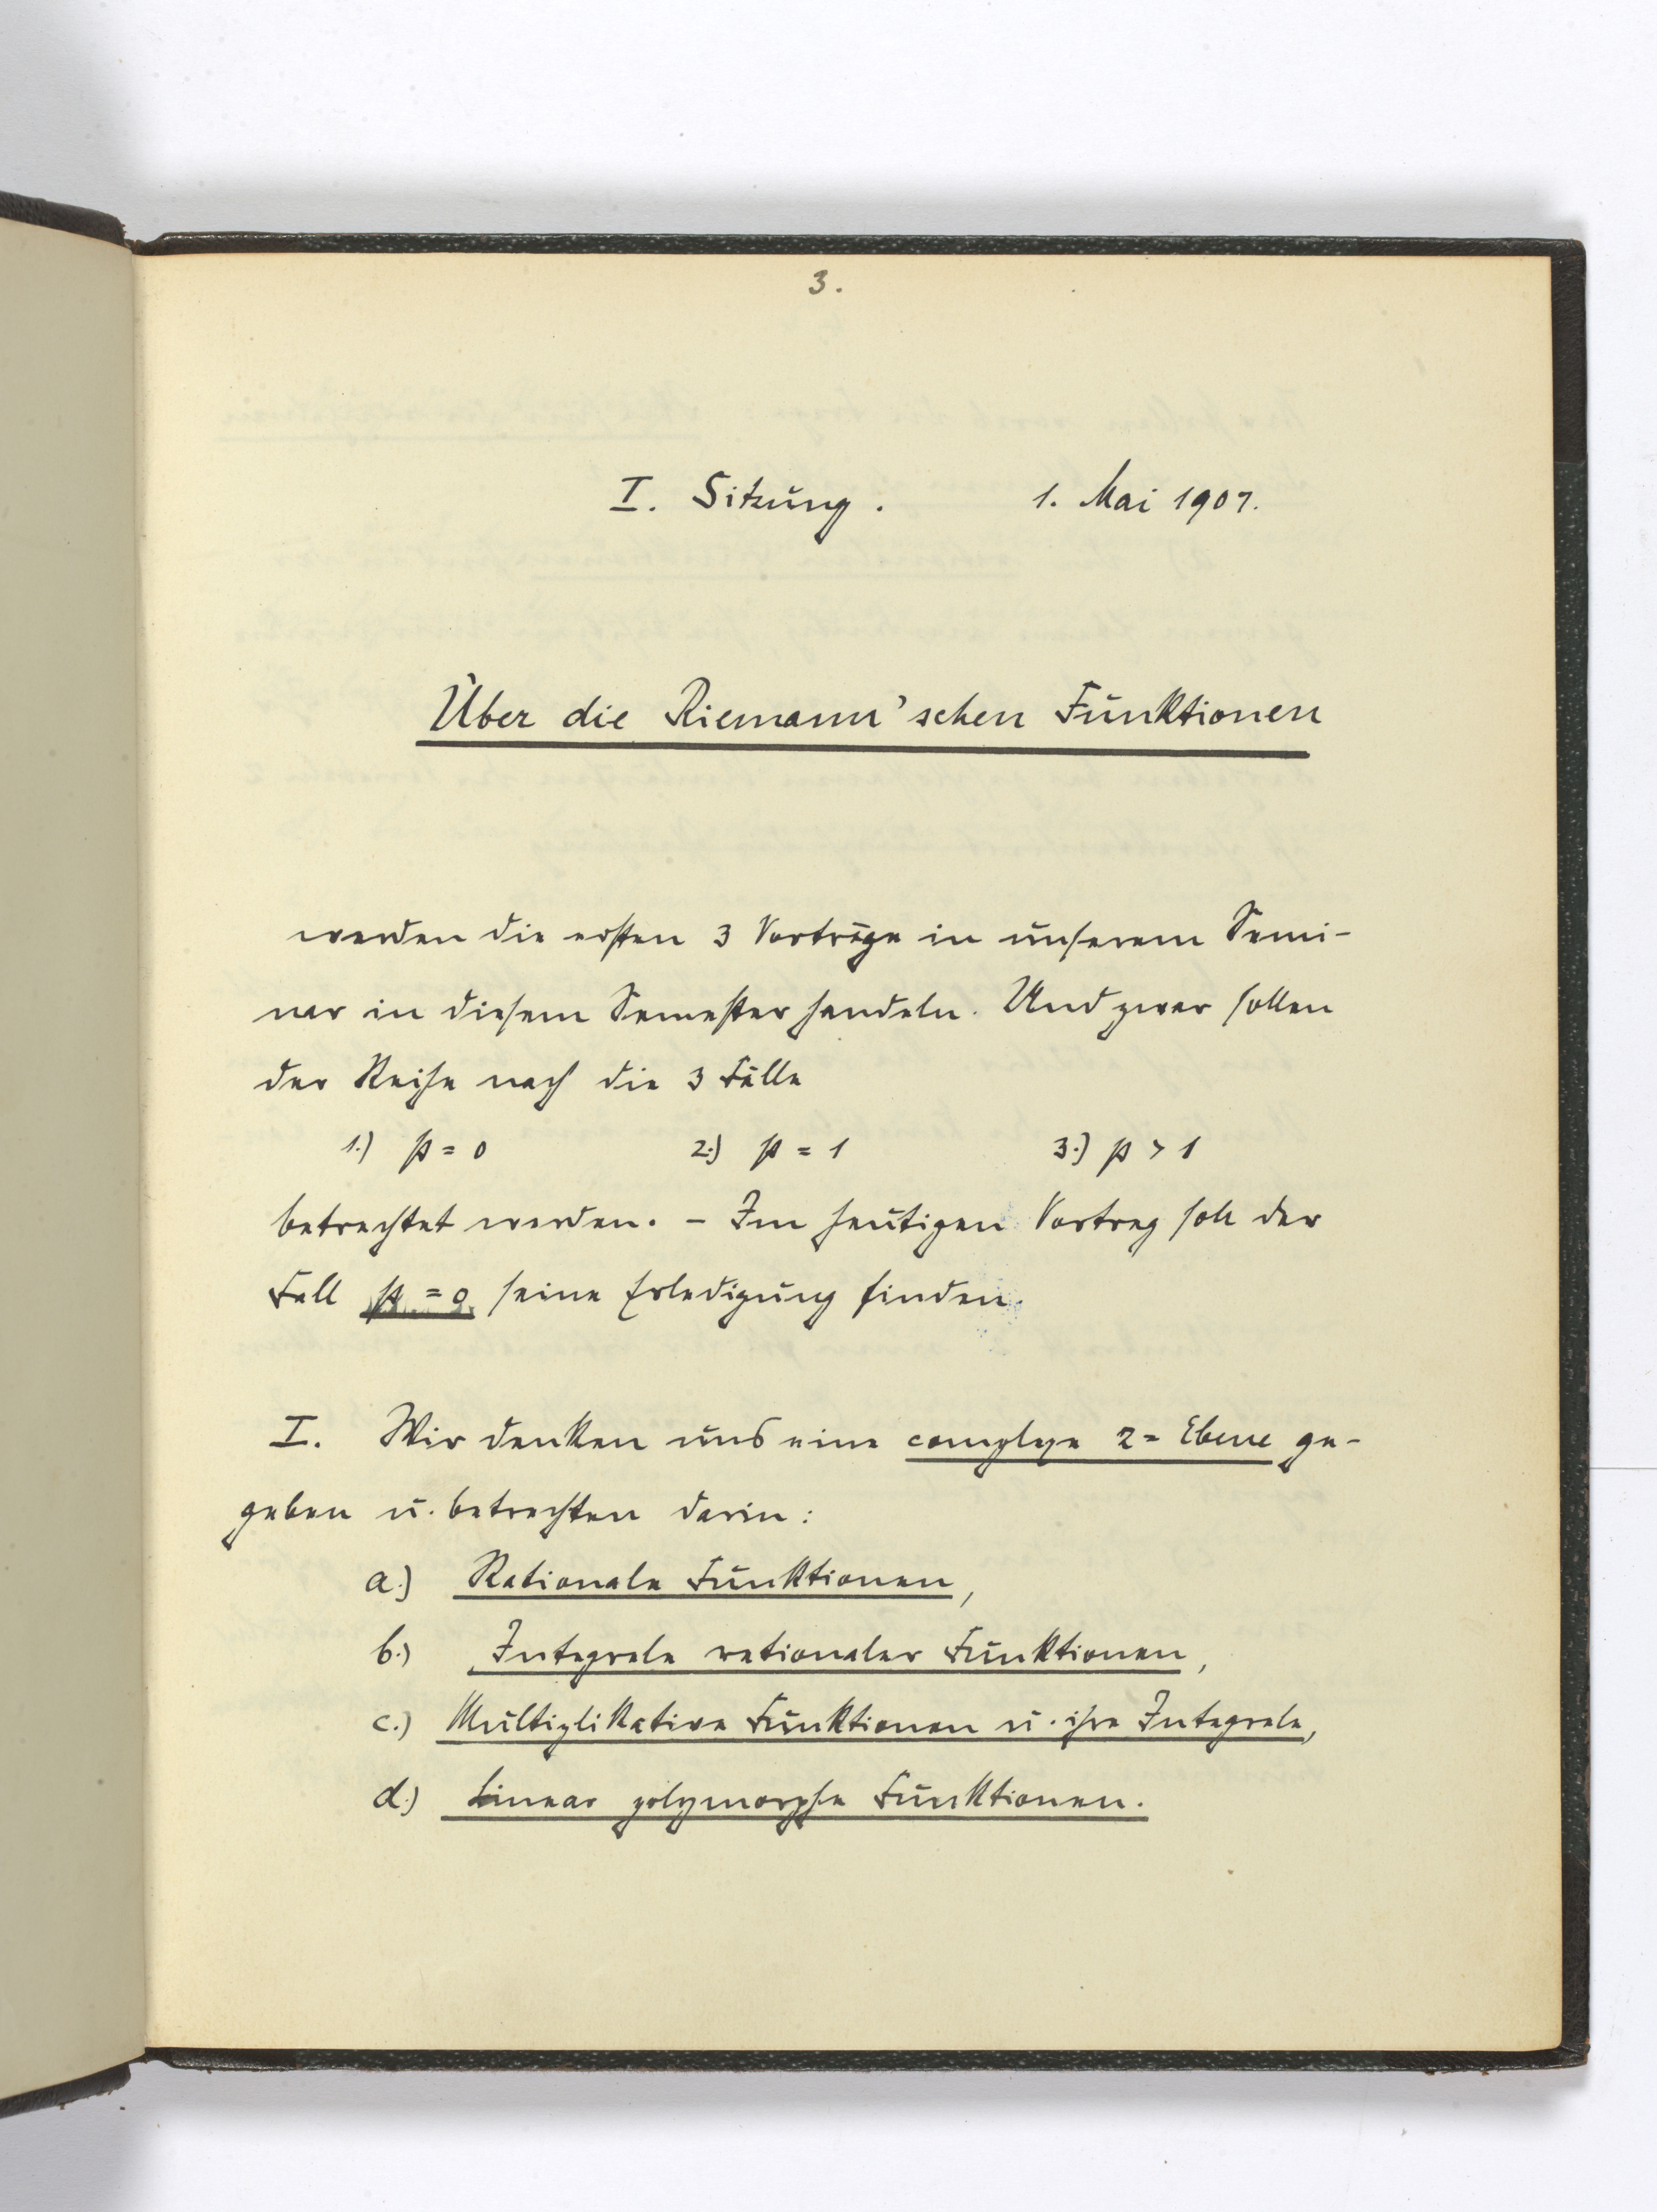 3.
I. Sitzung. 1. Mai 1907.
Über die Riemann'schen Funktionen
werden die ersten 3 Vorträge in unserem Semi-
nar in diesem Semester handeln. Und zwar sollen
der Reihe nach die 3 Fälle
1.) p = 0 2.) p = 1 3.) p > 1
betrachtet werden. – Im heutigen Vortrag soll der
Fall p = 0 seine Erledigung finden.
I. Wir denken uns eine complexe z= Ebene ge-
geben u. betrachten darin:
a.) Rationale Funktionen,
b.) Integrale rationaler Funktionen,
c.) Multiplikative Funktionen u. ihre Integrale,
d.) Linear polymorphe Funktionen.